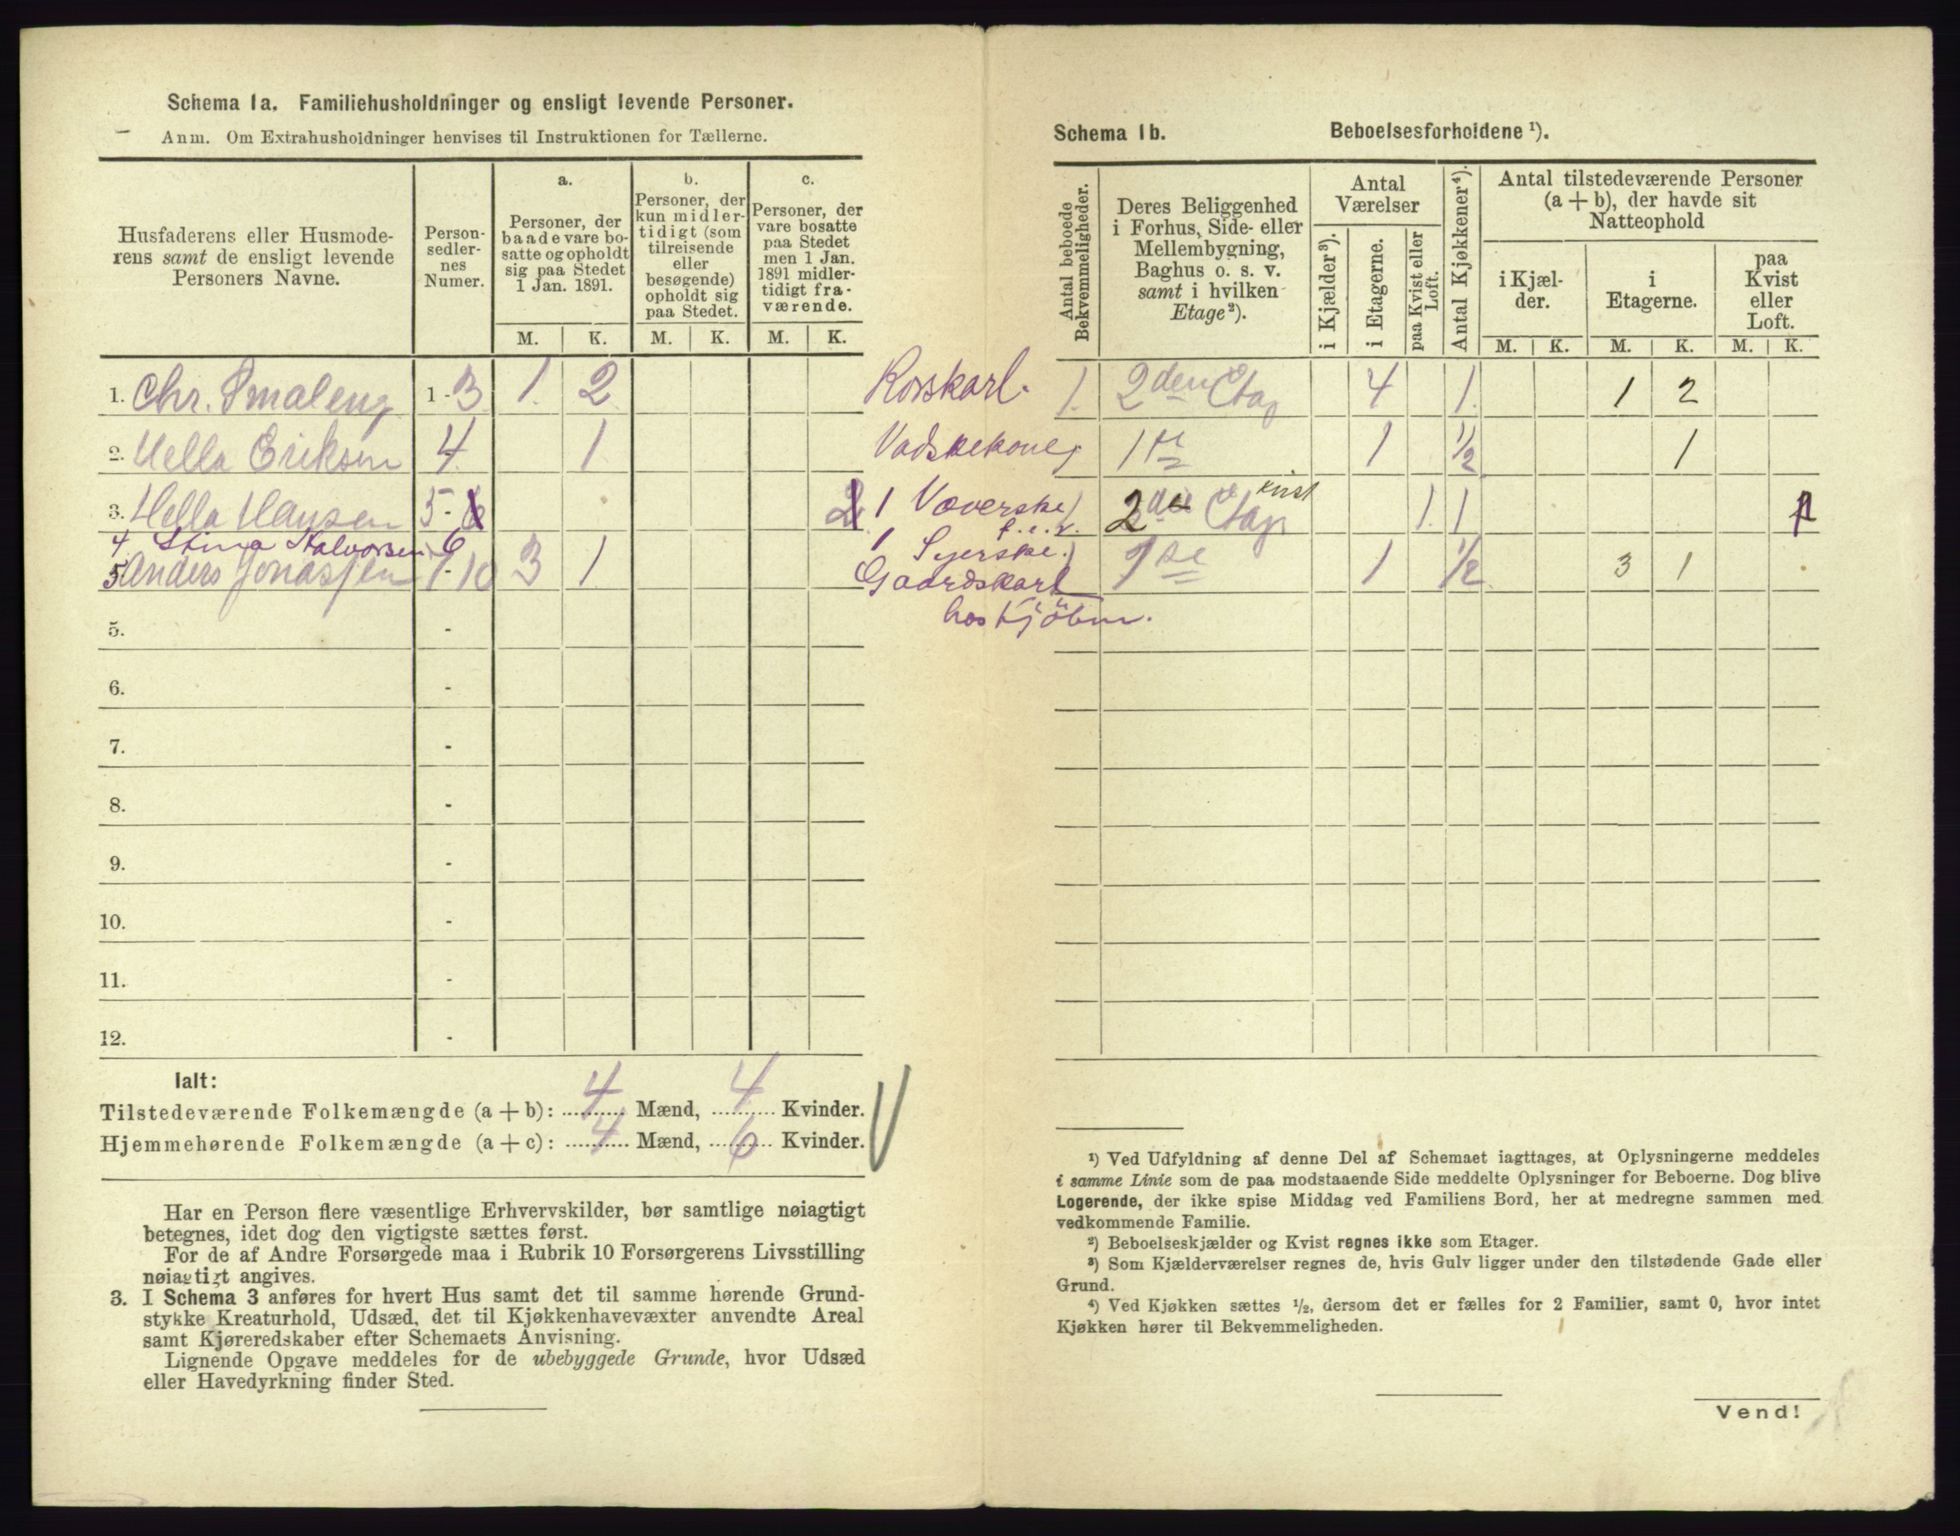 Schema 1a. Familiehusholdninger og ensligt levende Personer.
Anm. Om Extrahusholdninger henvises til Instruktionen for Tællerne.
Husfaderens eller Husmoderens samt de ensligt levende Personers Navne.
Personsedlernes Numer.
a.
Personer, der baade vare bosatte og opholdt sig paa Stedet 1 Jan. 1891.
b.
Personer, der kun midlertidigt (som tilreisende eller besøgende) opholdt sig paa Stedet.
c.
Personer, der vare bosatte paa Stedet men 1 Jan. 1891 midlertidigt fraværende.
M. K. M. K. M. K.
1. Chr. Smaleng 1-3 1. 2
2. Hella Erikson 4 1
3. Hella Hansen 5-6 2 1
4 Stina Halvorsen 6 1
5 Anders Jonassen 7-10 3 1
5. -
6. -
7. -
8. -
9. -
10. -
11. -
12. -
Ialt:
Tilstedeværende Folkemængde (a + b): 4 Mænd, 4 Kvinder.
Hjemmehørende Folkemængde (a + c): 4 Mænd, 6 Kvinder.
Har en Person flere væsentlige Erhvervskilder, bør samtlige nøiagtigt
betegnes, idet dog den vigtigste sættes først.
For de af Andre Forsørgede maa i Rubrik 10 Forsørgerens Livsstilling
nøiagtigt angives.
3. I Schema 3 anføres for hvert Hus samt det til samme hørende Grund-
stykke Kreaturhold, Udsæd, det til Kjøkkenhavevæxter anvendte Areal
samt Kjøreredskaber efter Schemaets Anvisning.
Lignende Opgave meddeles for de ubebyggede Grunde, hvor Udsæd
eller Havedyrkning finder Sted.
Schema 1b. Beboelsesforholdene ¹).
Antal beboede Bekvemmeligheder.
Deres Beliggenhed i Forhus, Side- eller Mellembygning, Baghus o. s. v. samt i hvilken Etage²).
Antal Værelser
i Kjælder³).
i Etagerne.
paa Kvist eller Loft.
Antal Kjøkkener⁴).
Antal tilstedeværende Personer (a + b), der havde sit Natteophold
i Kjælder.
i Etagerne.
paa Kvist eller Loft.
M. K. M. K. M. K.
1. 2den Etag 4 1. 1 2
Vadskekone 1ste 1 1/2 1
Væverske 2den Etag kvist 1. 1
f.e.r.
Syerske
Gaardskarl 1ste 1 1/2 3 1
hos Kjöbm.
¹) Ved Udfyldning af denne Del af Schemaet iagttages, at Oplysningerne meddeles
i samme Linie som de paa modstaaende Side meddelte Oplysninger for Beboerne. Dog blive
Logerende, der ikke spise Middag ved Familiens Bord, her at medregne sammen med
vedkommende Familie.
²) Beboelseskjælder og Kvist regnes ikke som Etager.
³) Som Kjælderværelser regnes de, hvis Gulv ligger under den tilstødende Gade eller
Grund.
⁴) Ved Kjøkken sættes ½, dersom det er fælles for 2 Familier, samt 0, hvor intet
Kjøkken hører til Bekvemmeligheden.
Vend!